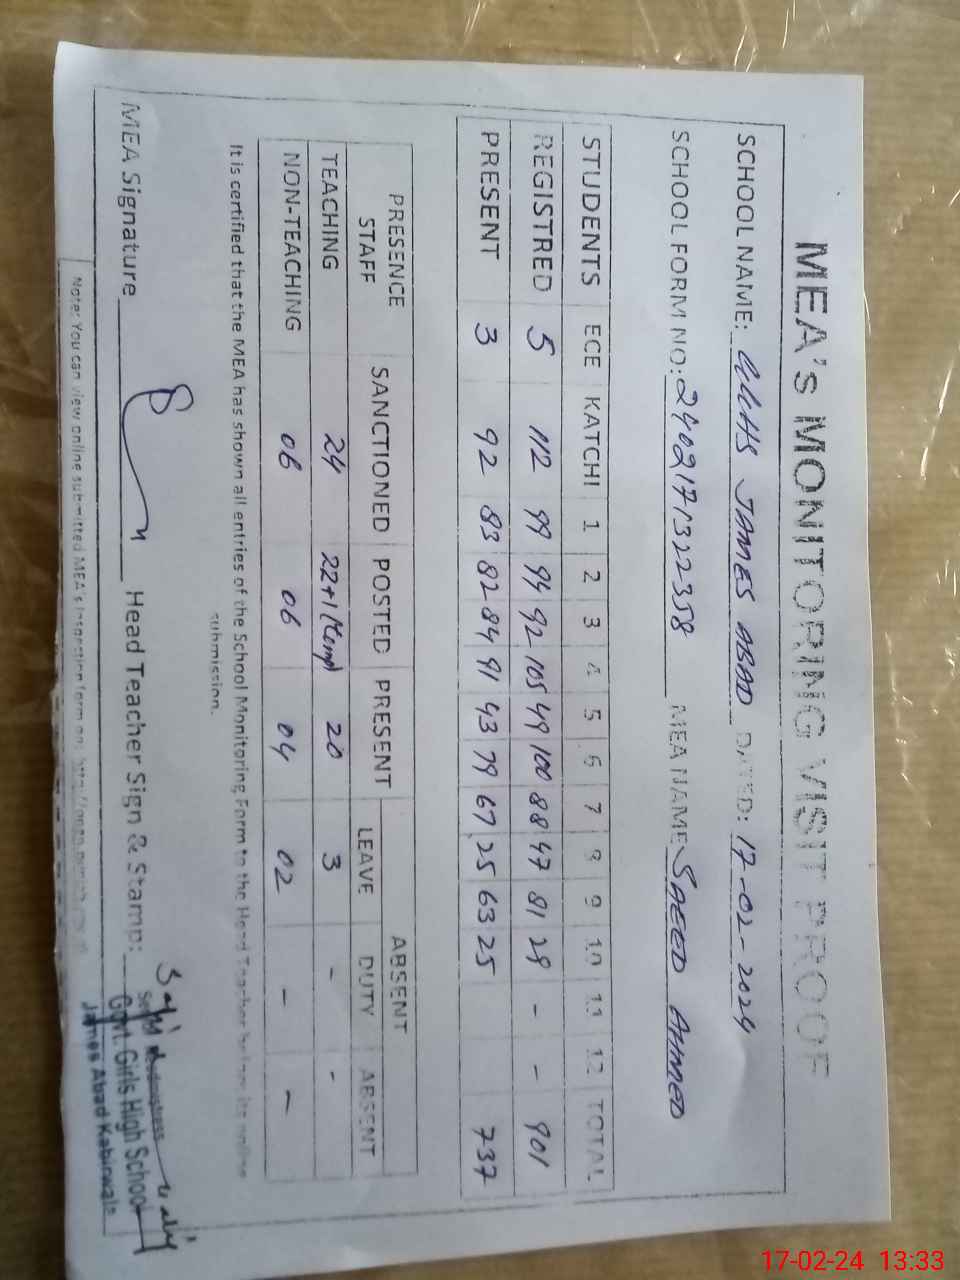 MEA's MONITORING VISIT PROOF
SCHOOL NAME: GGHS JAMES ABAD DATED: 17-02-2024
SCHOOL FORM NO: 2402171322358 MEA NAME SAEED AHMED
STUDENTS ECE KATCHI 1 2 3 4 5 6 7 8 9 10 11 12 TOTAL
REGISTRED 5 112 99 94 92 105 49 100 88 47 81 29 - - 901
PRESENT 3 92 83 82 84 91 43 79 67 25 63 25 737
PRESENCE ABSENT
STAFF SANCTIONED POSTED PRESENT LEAVE DUTY ABSENT
TEACHING 24 22+1(Temp) 20 3 - -
NON-TEACHING 06 06 04 02 - -
It is certified that the MEA has shown all entries of the School Monitoring Form to the Head Teacher before its online
submission.
MEA Signature Head Teacher Sign & Stamp:
Govt. Girls High School
James Abad Kabirwala
Note: You can view online submitted MEA's inspection form on:
17-02-24 13:33